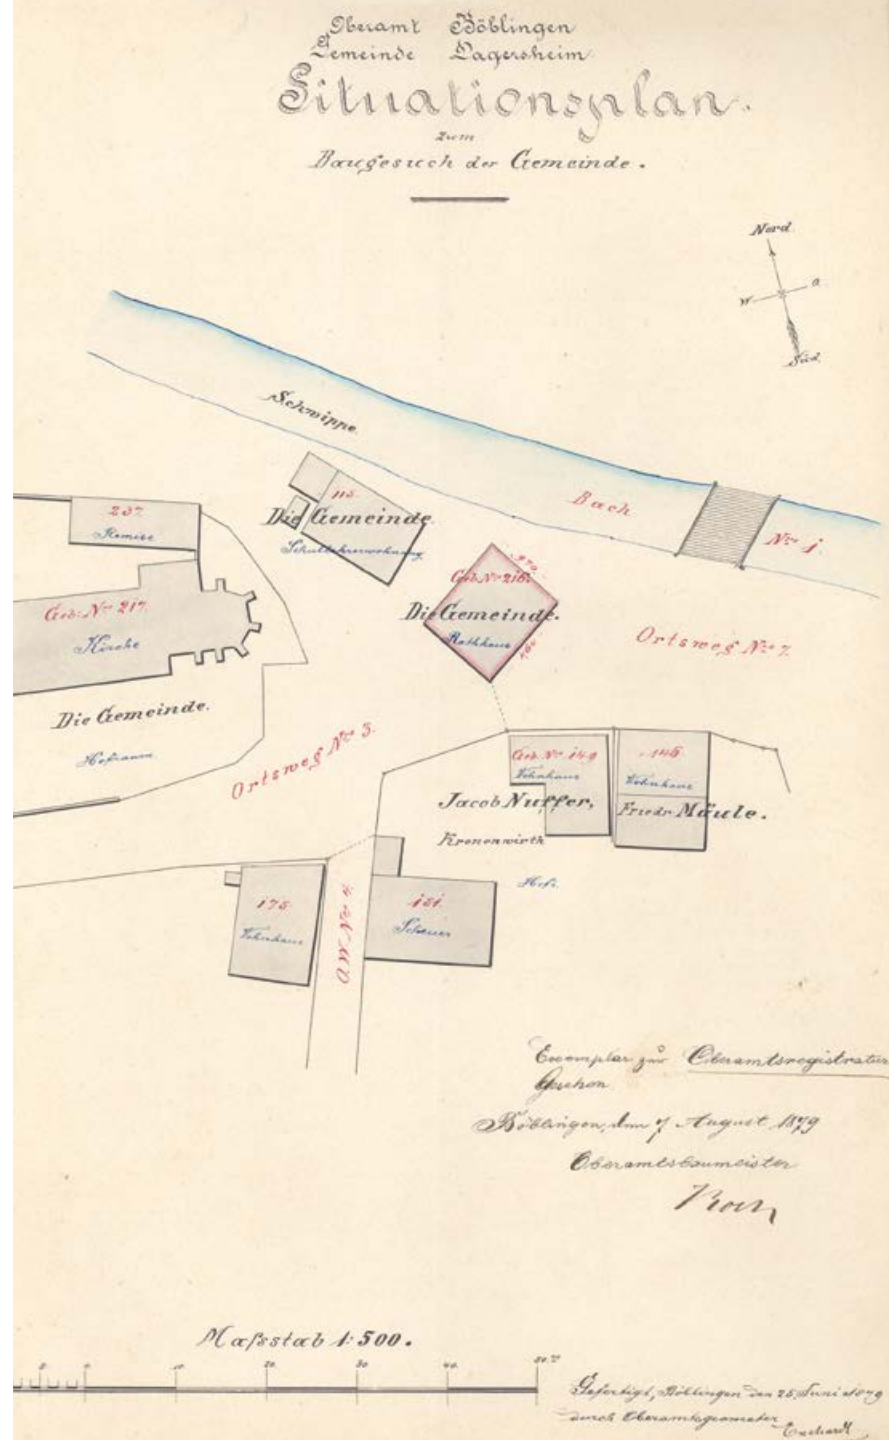 Oberamt Böblingen
Gemeinde Dagersheim.
Situationsplan.
zum
Baugesuch der Gemeinde.
Nord.
W
O.
Süd.
Schwippe.
Bach
Nro 1.
237.
Remise
115.
Die Gemeinde.
Schullehrerwohnung
Geb. Nro 216.
Die Gemeinde.
Rathhaus
Geb. Nro 217.
Kirche
Ortsweg Nro 7.
Die Gemeinde.
Hofraum.
Ortsweg Nro 3.
Geb. Nro 149
Wohnhaus
148.
Wohnhaus
Jacob Nuffer,
Friedr. Mäule.
Kronenwirth
Hof.
175.
Wohnhaus
OW Nro 4.
151.
Scheuer
Exemplar zur Oberamtsregistratur
Gesehen
Böblingen, den 7 August 1879
Oberamtsbaumeister
Maßstab 1:500.
0.
10.
20.
30.
40.
50.
Gefertigt, Böblingen den 25. Juni 1879
durch Oberamtsgeometer